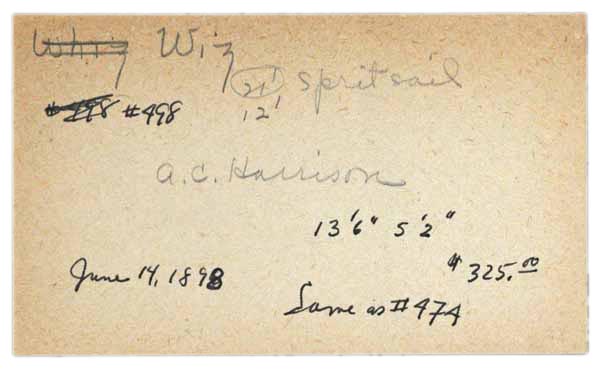 Whiz Wiz
21' spritsail
#498 #498 12'
A.C. Harrison
13'6" 5'2"
June 14, 1898 $325.00
Same as #474